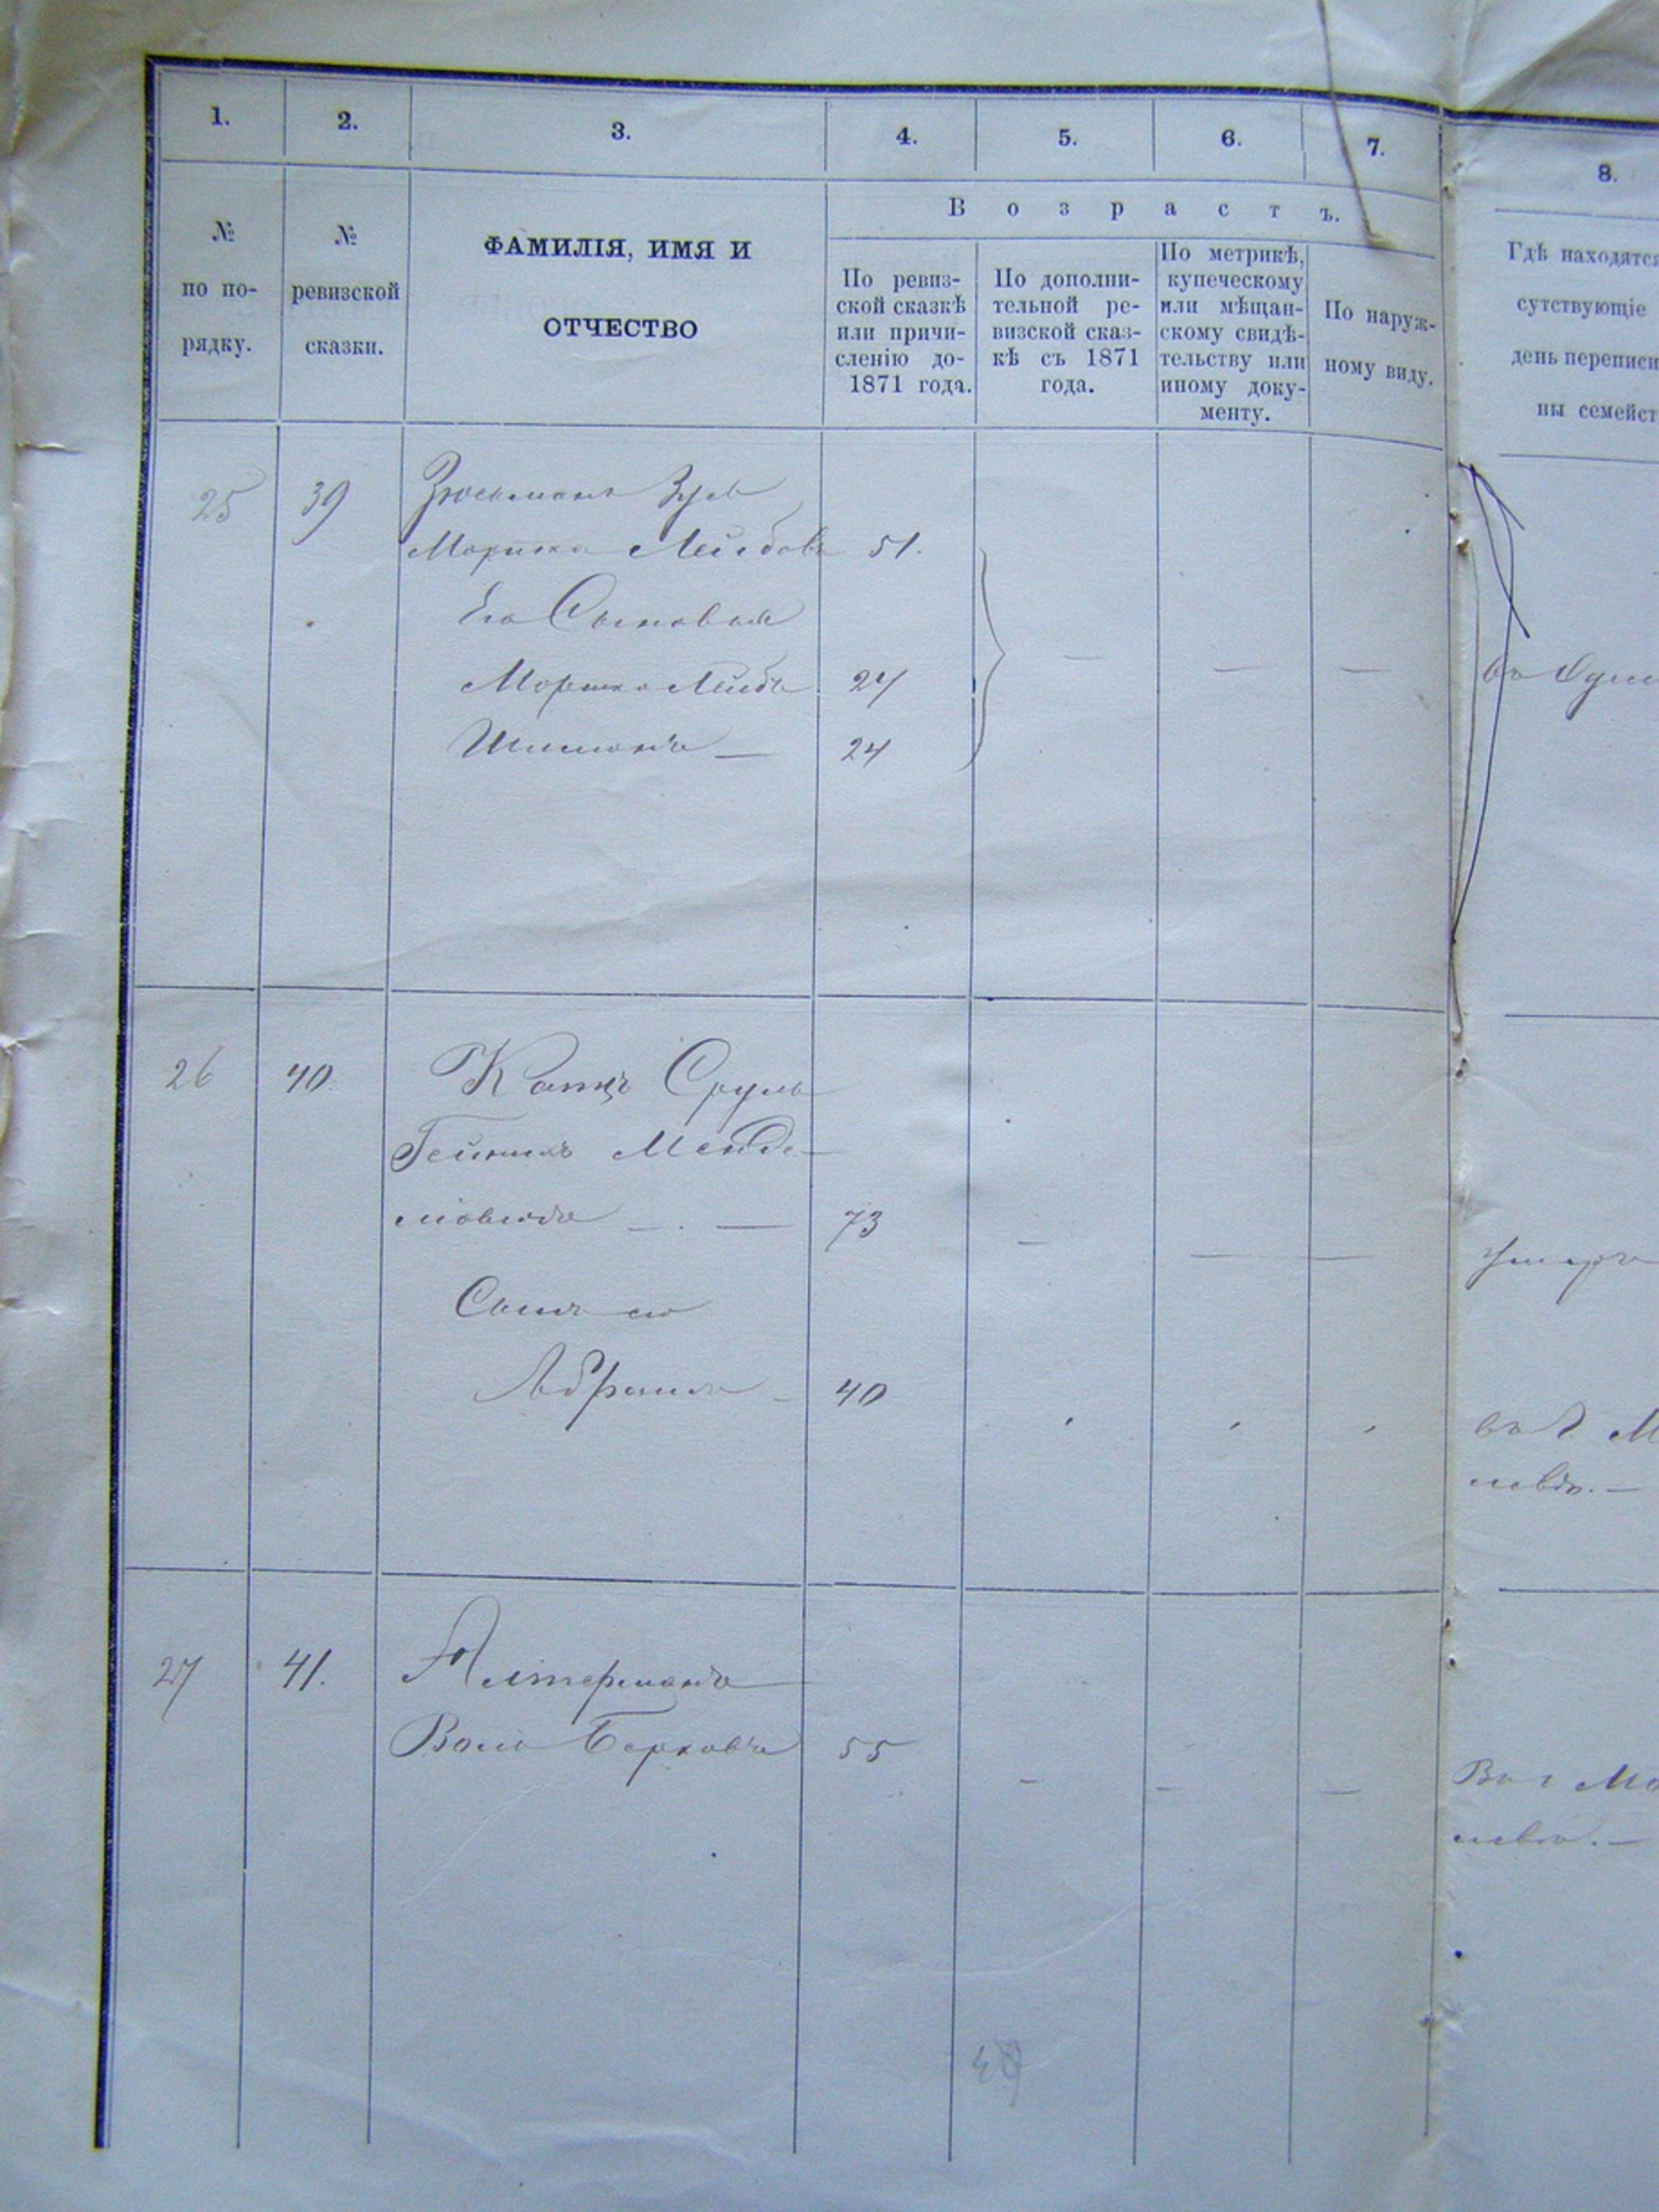 1. 2. 3. 4. 5. 6. 7. 8.
№ по по-рядку.
№ ревизской сказки.
ФАМИЛІЯ, ИМЯ И
ОТЧЕСТВО
Возрастъ.
По ревиз-
ской сказкѣ
или причи-
сленію до-
1871 года.
По дополни-
тельной ре-
визской сказ-
кѣ съ 1871
года.
По метрикѣ,
купеческому
или мѣщан-
скому свидѣ-
тельству или
иному доку-
менту.
По наруж-
ному виду.
Гдѣ находятся
сутствующіе
день переписи
ны семейст
25 39
Лейбовъ 51.
Его Сыновья
Мошко Лейба 24
Шимонъ — 24
26 40 Кацъ Сруль
Менде-
ловичъ — . — 73
умеръ
Сынъ его
Абрамъ - 40
въ г М
левѣ. —
27 41. Альтерманъ
Волъ Берковъ 55
Въ г Мо
левѣ. —